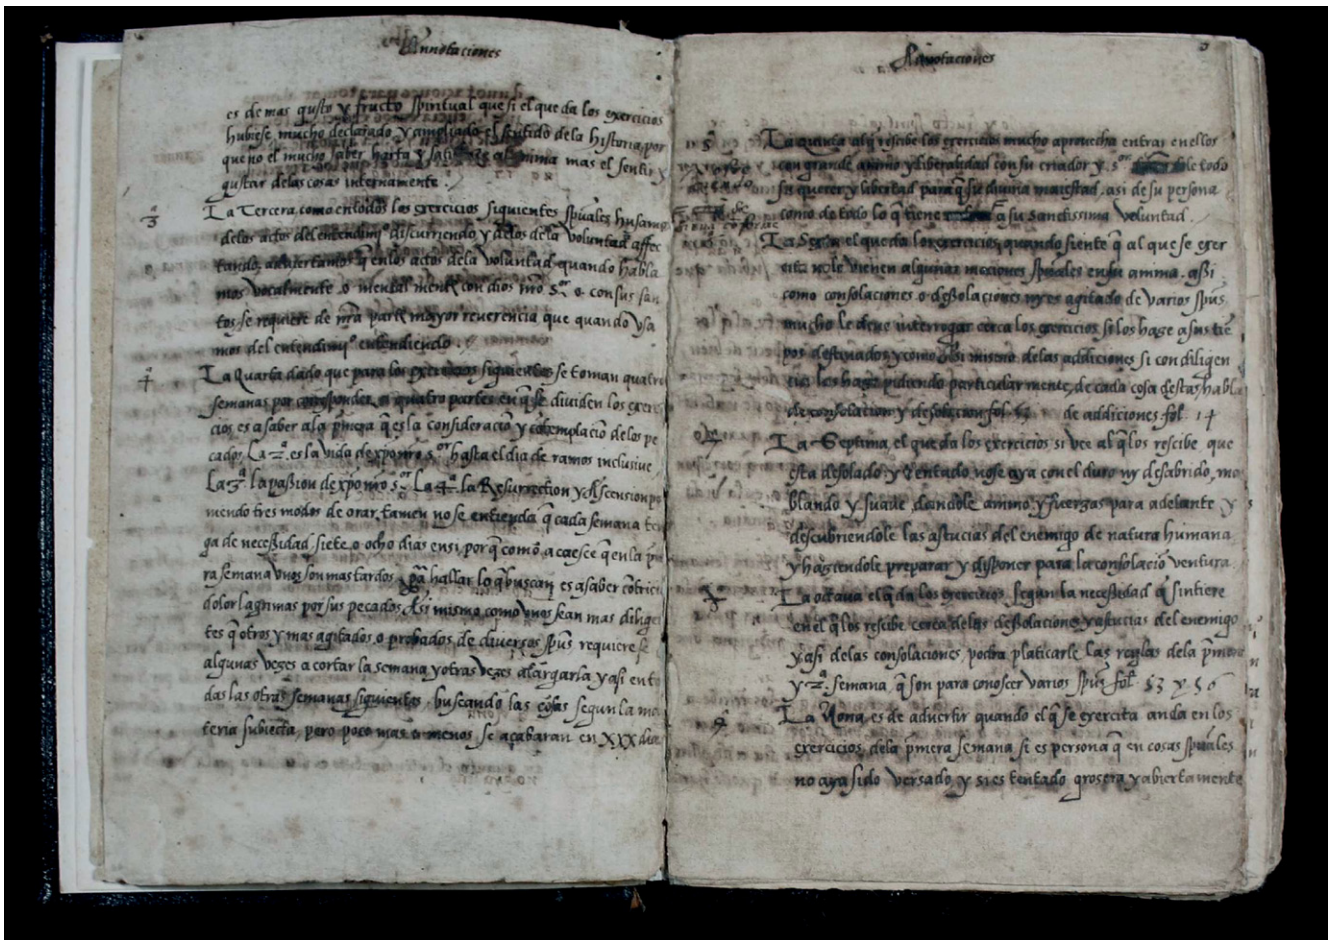 Annotaciones
es de mas gusto y fructo spiritual que si el que da los exercicios
hubiese mucho declarado y ampliado el sentido de la historia, por
que no el mucho saber harta y satisfaze al anima mas el sentir y
gustar de las cosas internamente.
3ª La Tercera, como en todos los exercicios siguientes spũales husamos
de los actos del entendimº discurriendo, y de los de la voluntad affec
tando, advertamos q̃ en los actos de la voluntad quando habla
mos vocalmente o mentalmente con dios nr̃o s.or o con sus san
tos se requiere de nr̃a parte mayor reverencia que quando usa
mos del entendimº entendiendo.
4ª La Quarta dado que para los exercicios siguientes se toman quatro
semanas por corresponder a quatro partes en q̃ se dividen los exerci
cios es a saber a la p̃mera q̃ es la consideraciõ y cõtemplaciõ de los pe
cados, La 2ª es la vida de xp̃o nr̃o s.or hasta el dia de ramos inclusive
La 3ª la passion de xp̃o nr̃o s.or La 4ª la Resurrection y Ascension po
niendo tres modos de orar, tamen no se entienda q̃ cada semana ten
ga de necessidad siete o ocho dias en si, porq̃ como acaesce q̃ en la p̃me
ra semana unos son mas tardos pã hallar lo q̃ buscan es a saber cõtrici
dolor lagrimas por sus pecados, Assi mismo como unos sean mas diligẽ
tes q̃ otros y mas agitados o probados de diversos spũs requierese
algunas vezes acortar la semana y otras vezes alargarla y asi en to
das las otras semanas siguientes, buscando las cosas segun la ma
teria subiecta, pero poco mas o menos se acabaran en XXX dias
Annotaciones
5ª La quinta al q̃ rescibe los exercicios mucho aprovecha entrar en ellos
con grande animo y liberalidad con su criador y s.or todo
su querer y libertad para q̃ su divina maiestad, asi de su persona
como de todo lo q̃ tiene a su sanctissima voluntad.
La Sexta el que da los exercicios, quando siente q̃ al que se exer
cita no le vienen algunas mociones spũales en su anima, assi
como consolaciones o dessolaciones ny es agitado de varios spũs
mucho le deve interrogar cerca los exercicios si los haze a sus tiẽ
pos destinados y como Assi mismo de las addiciones si con diligen
cia las haze pidiendo particularmente de cada cosa destas, habla
de consolacion y desolacion fol. de addiciones fol. 14
La Septima, el que da los exercicios si vee al q̃ los rescibe que
esta desolado y tentado, no se aya con el duro ny desabrido, mas
blando y suave, dandole animo y fuerzas para adelante y
descubriendole las astucias del enemigo de natura humana
y haziendole preparar y disponer para la consolaciõ ventura.
La octava el q̃ da los exercicios, segun la necessidad q̃ sintiere
en el q̃ los rescibe cerca de las dessolaciones y astucias del enemigo
y asi de las consolaciones, podra platicarle las reglas de la p̃mera
y 2ª semana, q̃ son para conoscer varios spũs fol. 53 y 56
9 La Nona, es de advertir quando el q̃ se exercita anda en los
exercicios de la p̃mera semana, si es persona q̃ en cosas spũales
no aya sido versado, y si es tentado grosera y abiertamente